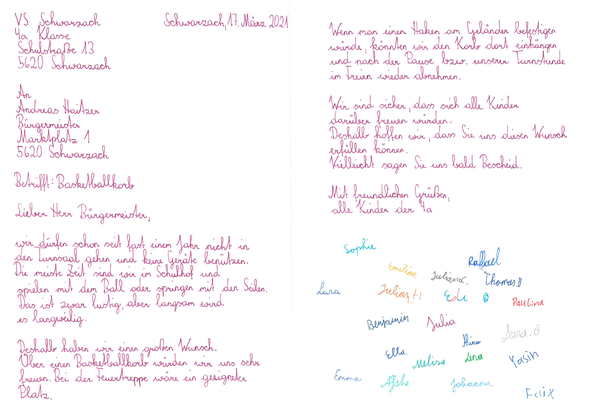 VS Schwarzach
Schwarzach, 17. März 2021
4a Klasse
Schulstraße 13
5620 Schwarzach
An
Andreas Haitzer
Bürgermeister
Marktplatz 1
5620 Schwarzach
Betrifft: Basketballkorb
Lieber Herr Bürgermeister,
wir dürfen schon seit fast einem Jahr nicht in
den Turnsaal gehen und keine Geräte benützen.
Die meiste Zeit sind wir im Schulhof und
spielen mit dem Ball oder springen mit den Seilen.
Das ist zwar lustig, aber langsam wird
es langweilig.
Deshalb haben wir einen großen Wunsch.
Über einen Basketballkorb würden wir uns sehr
freuen. Bei der Feuertreppe wäre ein geeigneter
Platz.
Wenn man einen Haken am Geländer befestigen
würde, könnten wir den Korb dort einhängen
und nach der Pause bzw. unserer Turnstunde
im Freien wieder abnehmen.
Wir sind sicher, dass sich alle Kinder
darüber freuen würden.
Deshalb hoffen wir, dass Sie uns diesen Wunsch
erfüllen können.
Vielleicht sagen Sie uns bald Bescheid.
Mit freundlichen Grüßen,
alle Kinder der 4a
Sophie
Raffael
Emilia
Juliana.
Thomas.B
Lara
Julian.H
Paulina
Benjamin
Julia
Ella
Melisa
Lena
Yasin
Emma
Ayshe
Johanna
Felix